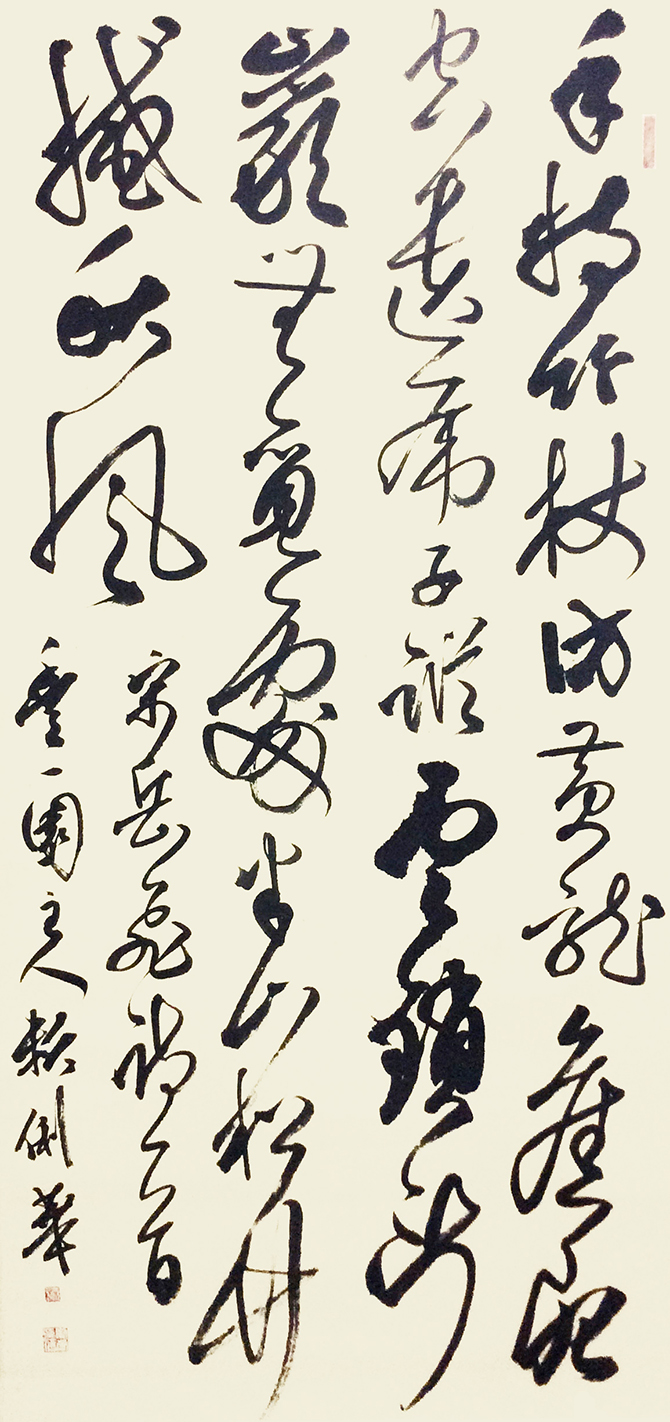 手持竹杖訪黃龍舊穴
空遺虎子蹤雲鎖斷
巖無覓處半山松竹
撼秋風
宋岳飛詩一首
園主人賴俐華